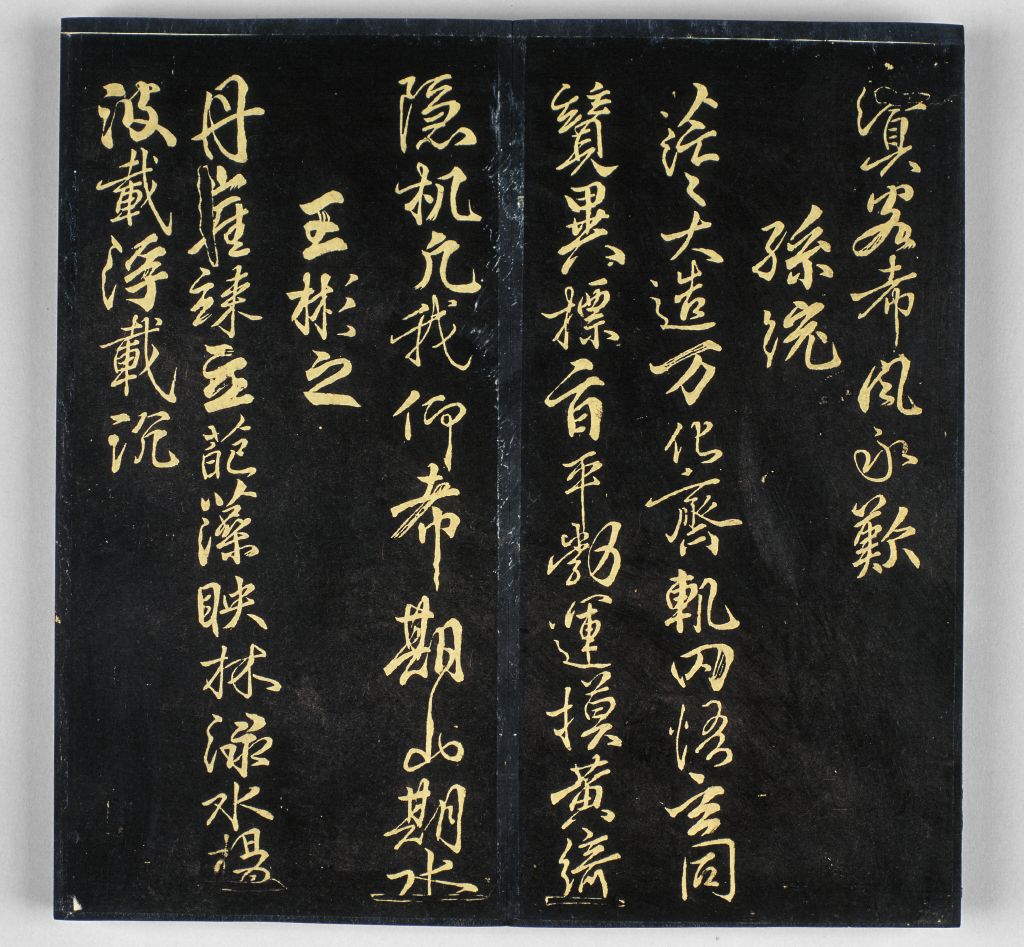 希風永歎
孫統
茫〻大造万化齊軌罔悟玄同
競異標旨平勃運摸黃綺
隱机凢我仰希期山期水
王彬之
丹崖竦立葩藻映林淥水揚
波載浮載沉